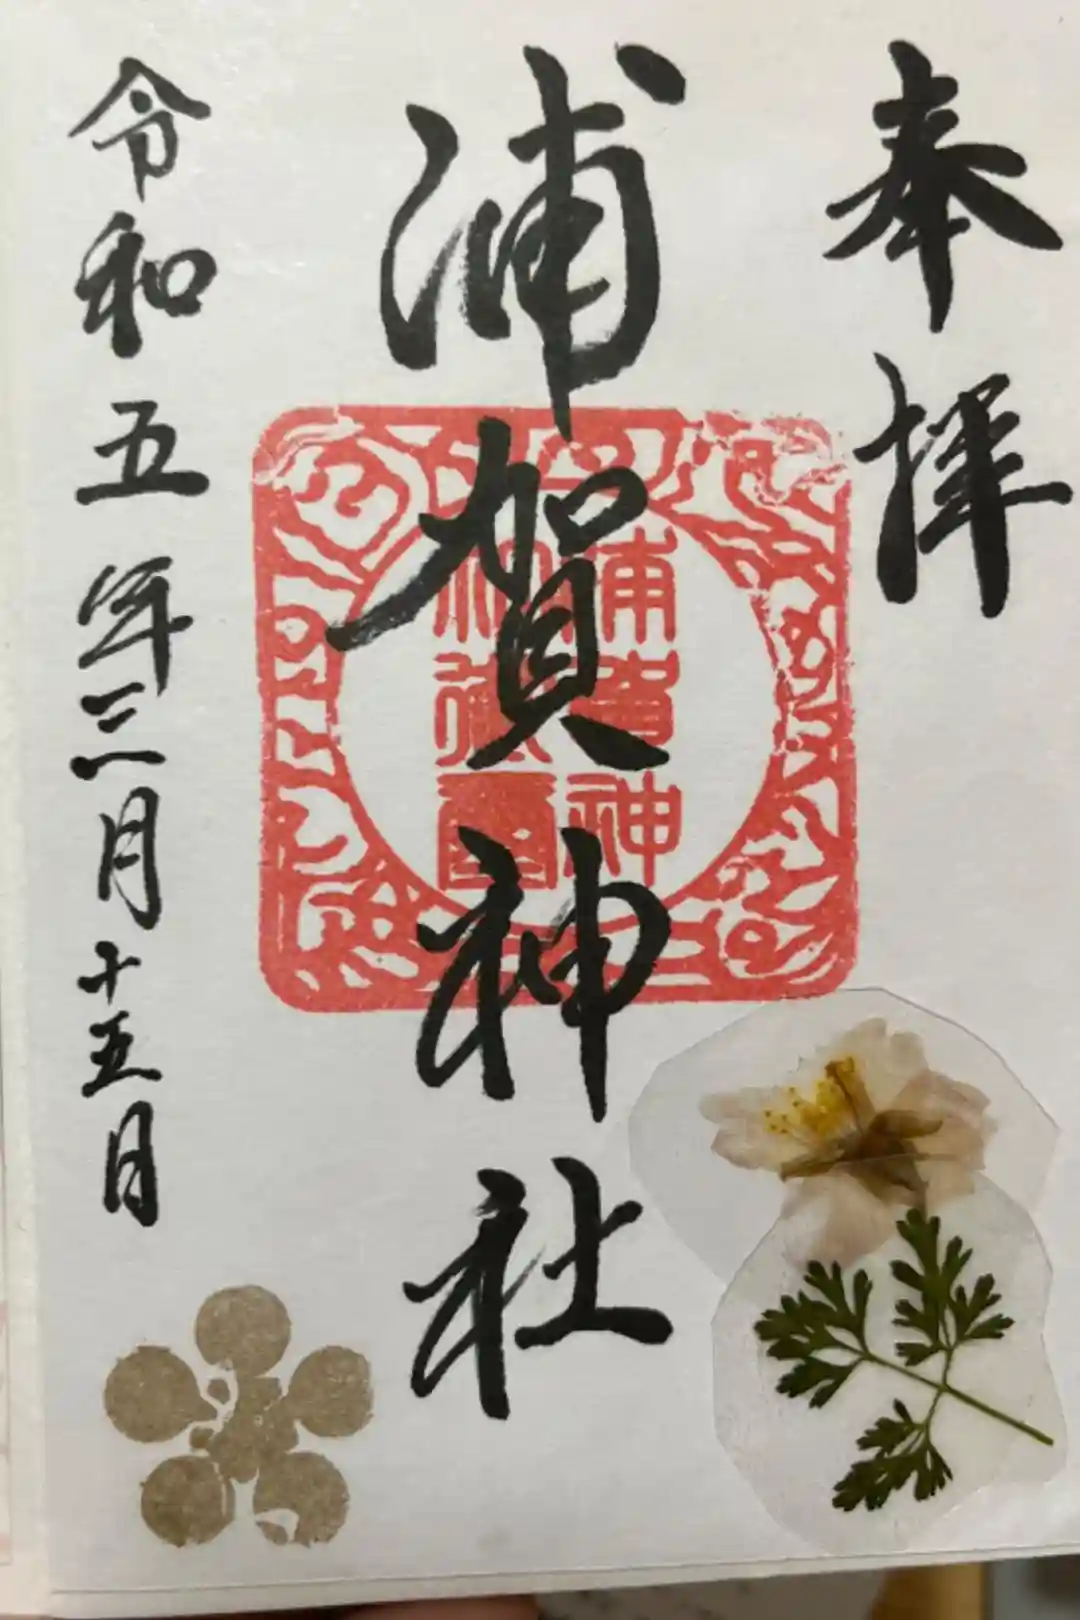 奉拝
浦賀神社
浦賀神
社御璽
令和五年三月十五日